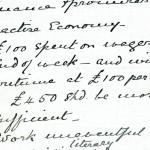 ective Economy –
£100 spent on wages
nd of week – and wi
ontinue at £100 per
£450 shd be mo
ufficient –
Work uneventful
literary